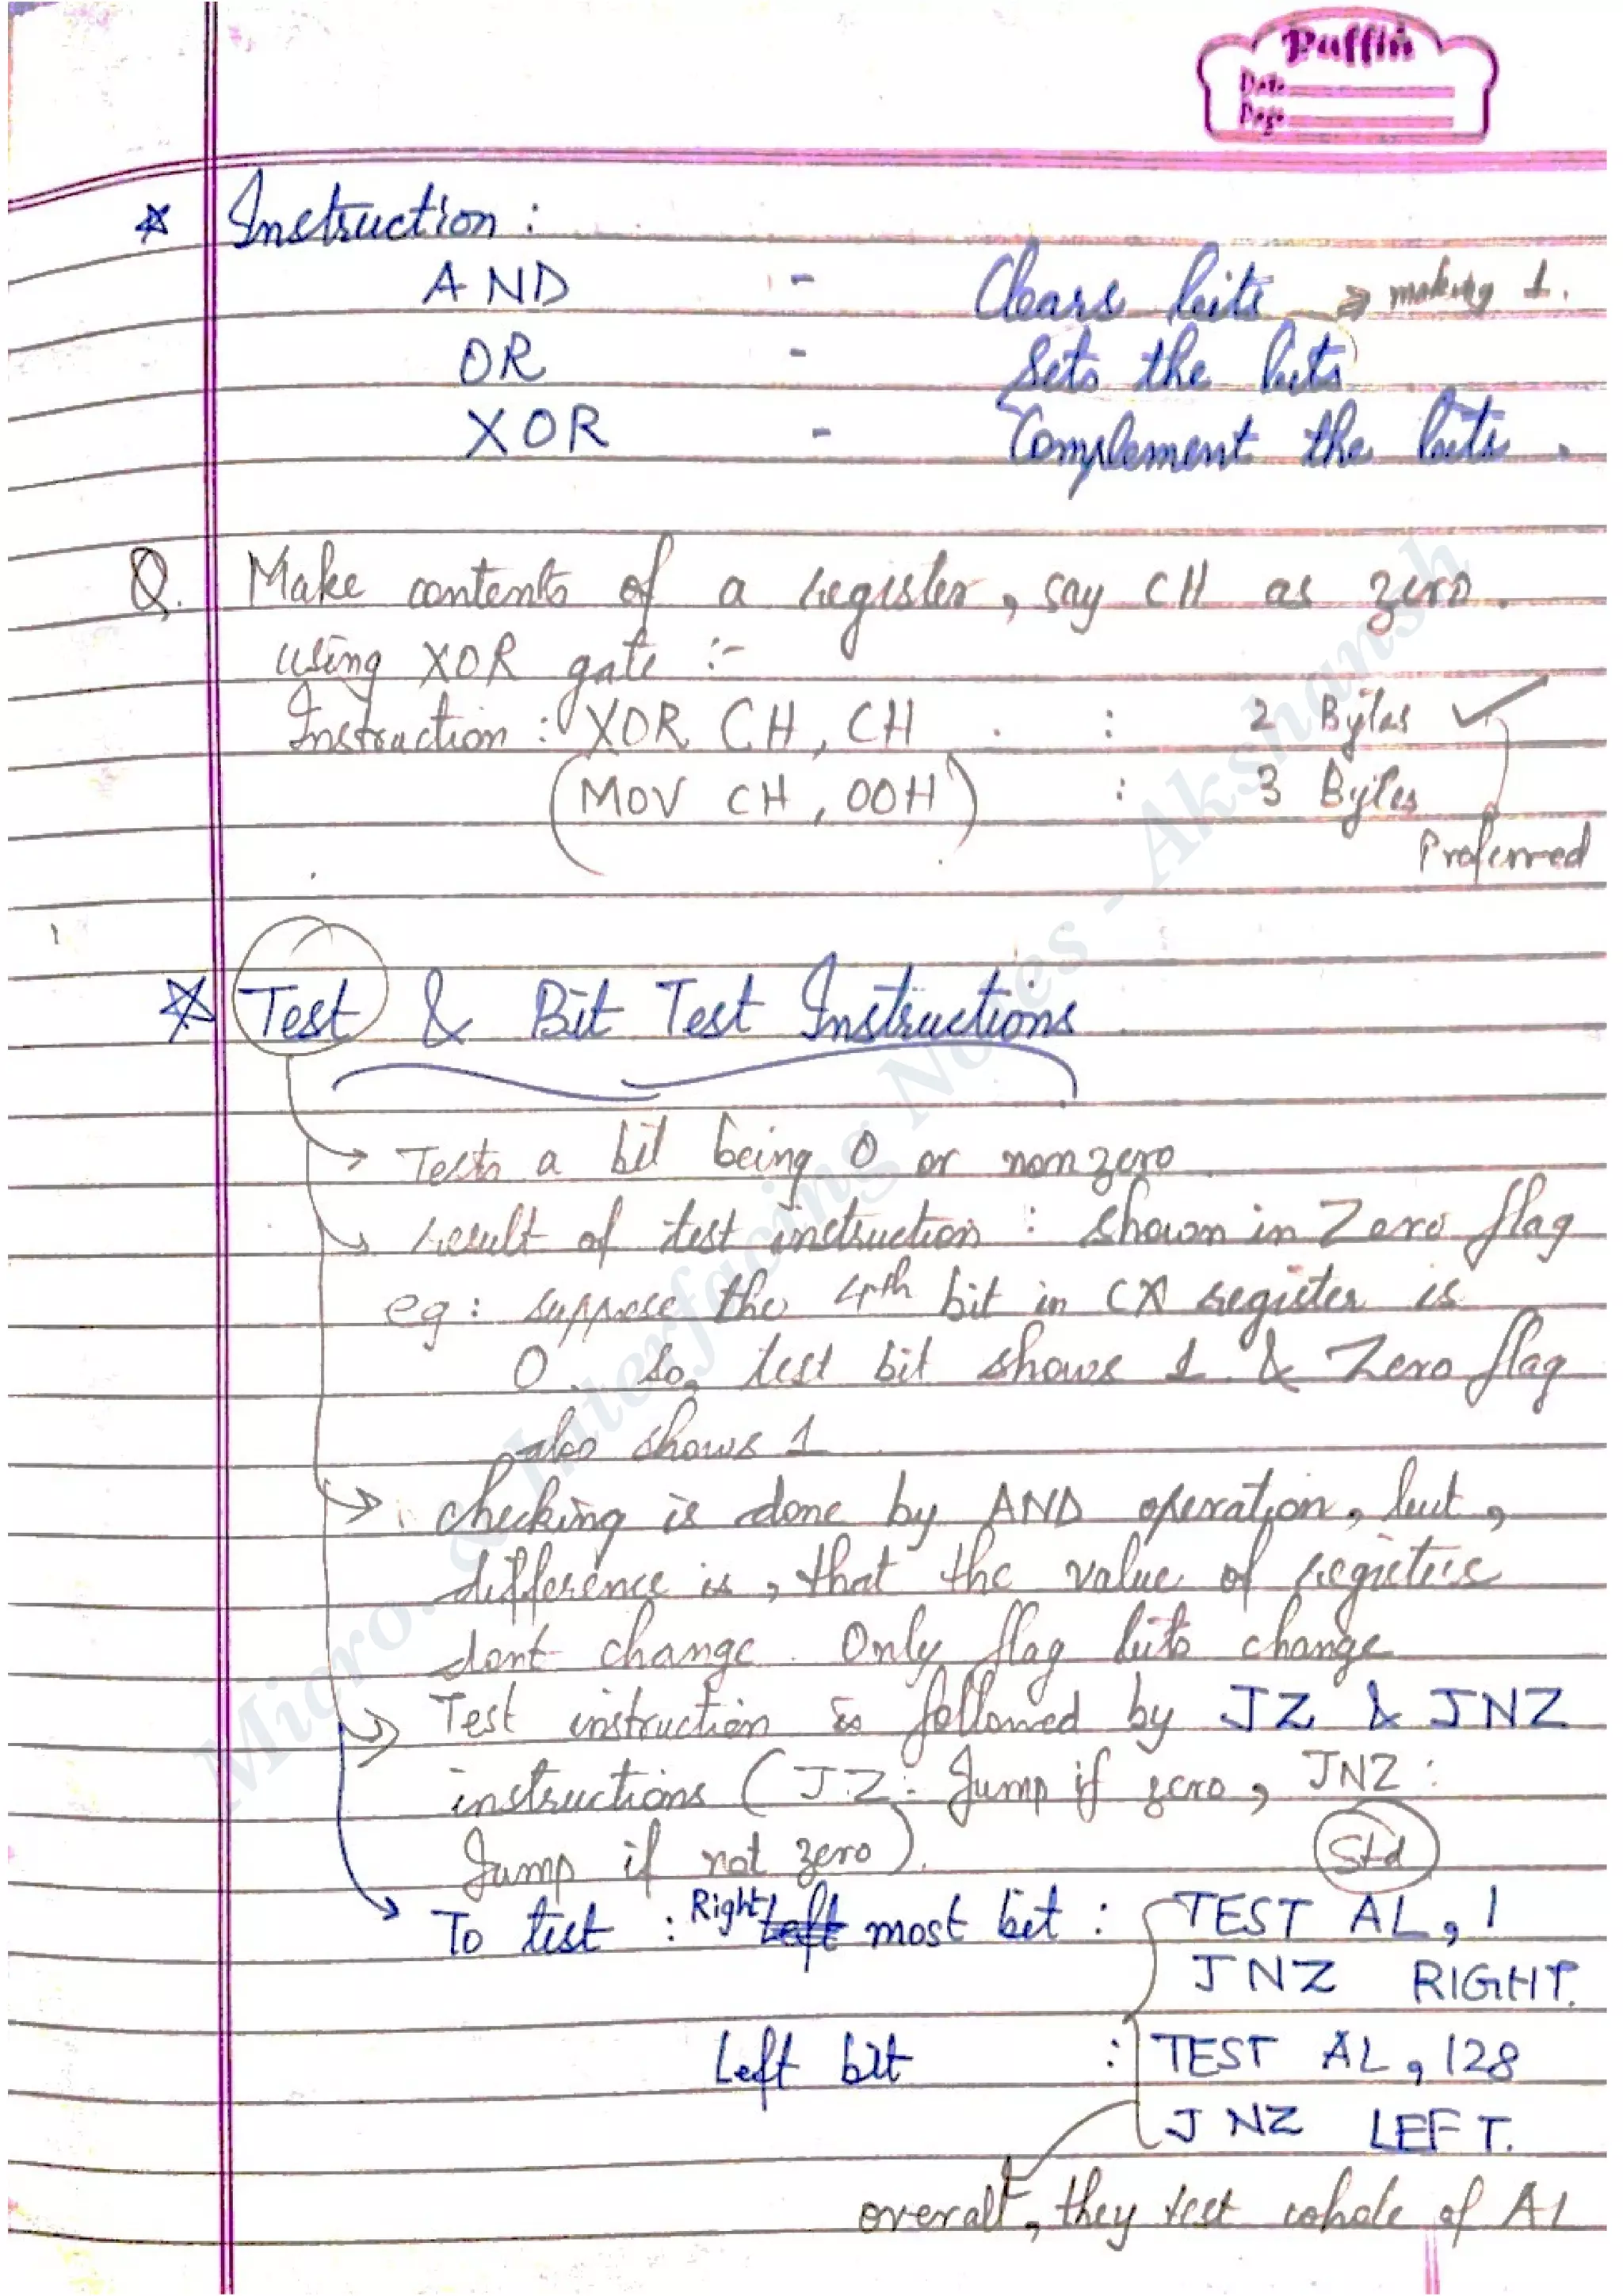 Puffin
Date
Page
☆ Instruction :
AND - Clears bits → making 1.
OR - Sets the bits
XOR - Complement the bits .
Q. Make contents of a register, say CH as zero.
using XOR gate :-
Instruction : XOR CH, CH : 2 Bytes ✓
(MOV CH, 00H) : 3 Bytes
Preferred
☆ Test & Bit Test Instructions
→ Tests a bit being 0 or nonzero
→ result of test instruction : shown in Zero flag
eg : suppose the 4th bit in CX register is
0. so, test bit shows 1 & Zero flag
also shows 1
→ checking is done by AND operation, but,
difference is, that the value of registers
dont change. Only flag bits change
→ Test instruction is followed by JZ & JNZ
instructions (JZ : Jump if zero, JNZ :
Jump if not zero).
Std
→ To test : Right most bit : TEST AL, 1
JNZ RIGHT.
Left bit : TEST AL, 128
JNZ LEFT.
overall, they test whole of AL
Micro. & Interfacing Notes - Akshansh